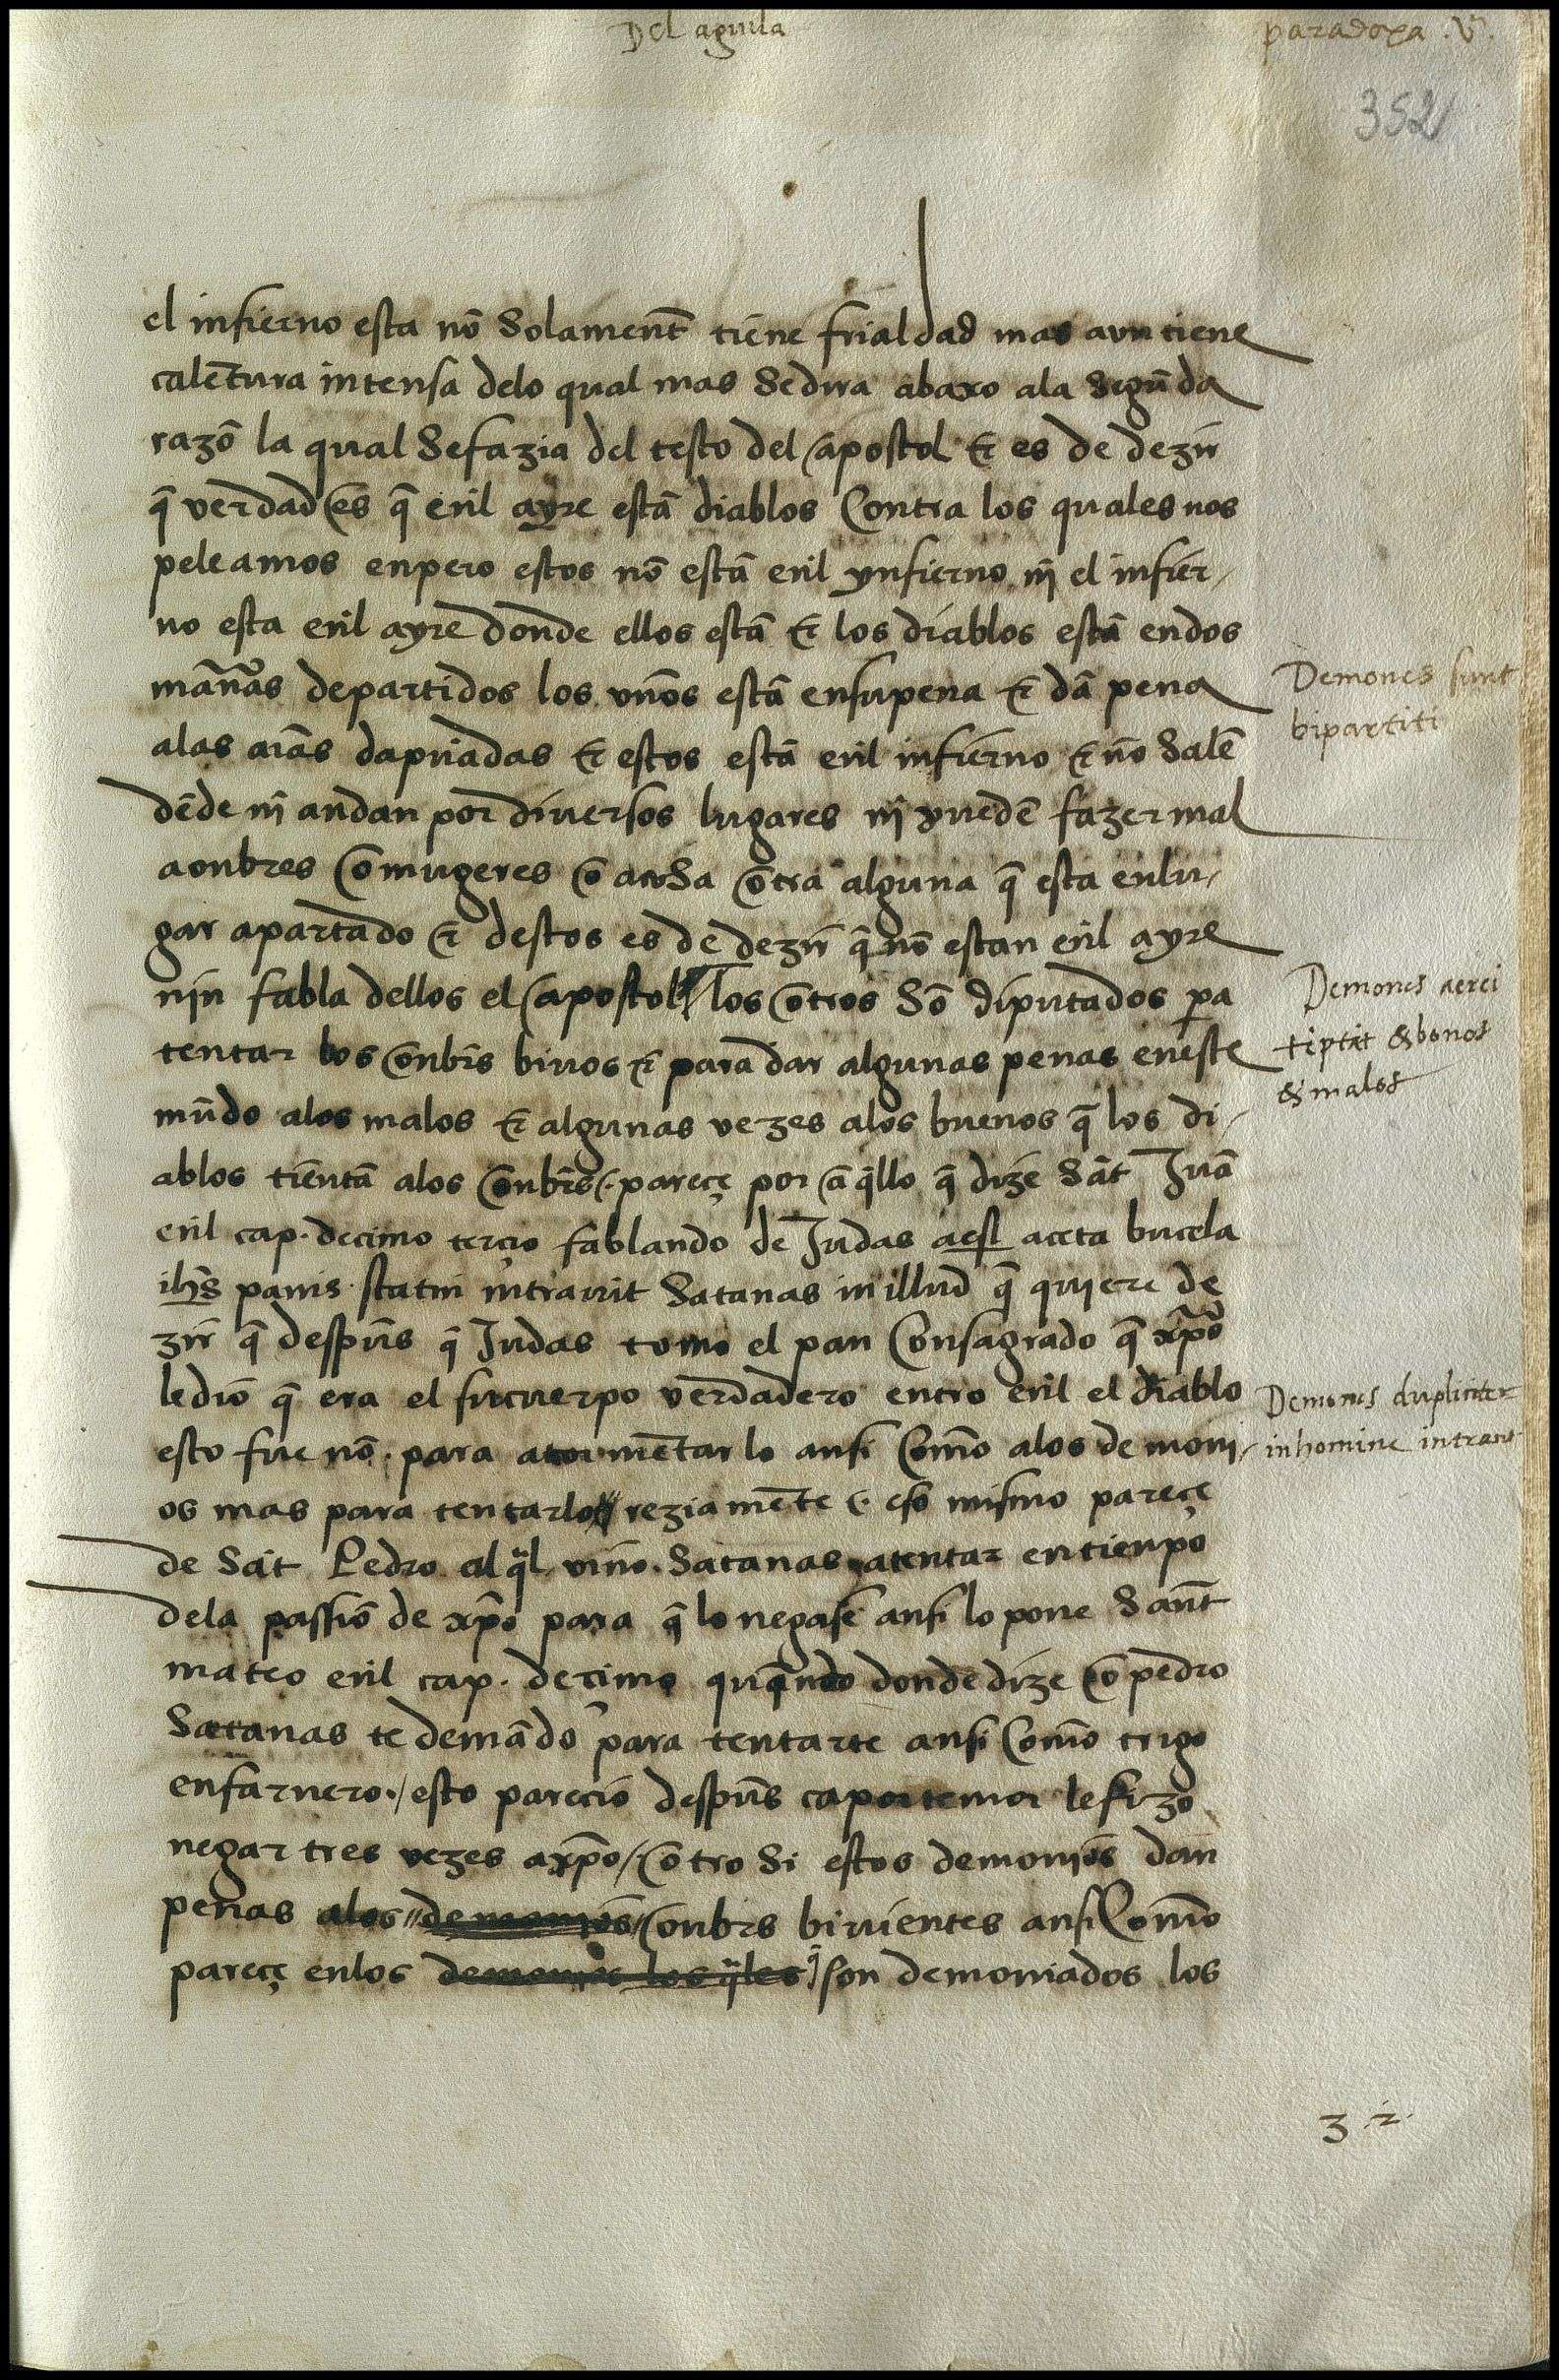 Del aguila
paradoxa .v.
352
el infierno esta nõ solament̃ tiene frialdad mas avn tiene
calẽtura intensa delo qual mas se dira abaxo ala segũda
razõ la qual se fazia del testo del apostol & es de dezir̃
q̃ verdad es q̃ enl ayre estã diablos contra los quales nos
peleamos enpero estos nõ estã enl ynfierno nĩ el infier
no esta enl ayre donde ellos estã & los diablos estã en dos
mañas departidos los vnos estã en su pena & dã pena
Demones sunt
bipartiti
alas aĩas dapñadas & estos estã enl infierno & nõ salẽ
dẽde nĩ andan por diuersos lugares nĩ puedẽ fazer mal
a onbres o mugeres o a cosa otra alguna q̃ esta en lu
gar apartado & destos es de dezir̃ q̃ nõ estan enl ayre
nin fabla dellos el apostol / los otros sõ diputados pa
Demones aerei
tẽptãt & bonos
& malos
tentar los onbr̃s biuos & para dar algunas penas en este
mũdo alos malos & algunas vezes alos buenos q̃ los di
ablos tiẽntã alos onbr̃s pareçe por aq̃llo q̃ dize sãt Juã
enl cap. decimo terçio fablando de Judas
ihs̃ panis statĩ intrauit Satanas in illud q̃ quiere de
zir̃ q̃ despũs q̃ Judas tomo el pan consagrado q̃ xp̃o
le dio q̃ era el su cuerpo verdadero entro enl el diablo
Demones dupliciter
in homine intrant
esto fue nõ para atormẽtarlo ansi como alos demoni
os mas para tentarlo reziamẽte & eso mismo pareçe
de sãt Pedro al q̃l vino Satanas a tentar en tienpo
dela passiõ de xp̃o para q̃ lo negase ansi lo pone sant̃
mateo enl cap. deçimo quando donde dize o pedro
Satanas te demãdo para tentarte ansi como trigo
en farnero / esto parecio despũs ca por temor le fizo
negar tres vezes a xp̃o / otro si estos demonios dan
penas alos demonios onbr̃s biuientes ansi como
pareçe enlos demonios los q̃les q̃ son demoniados los
3 2